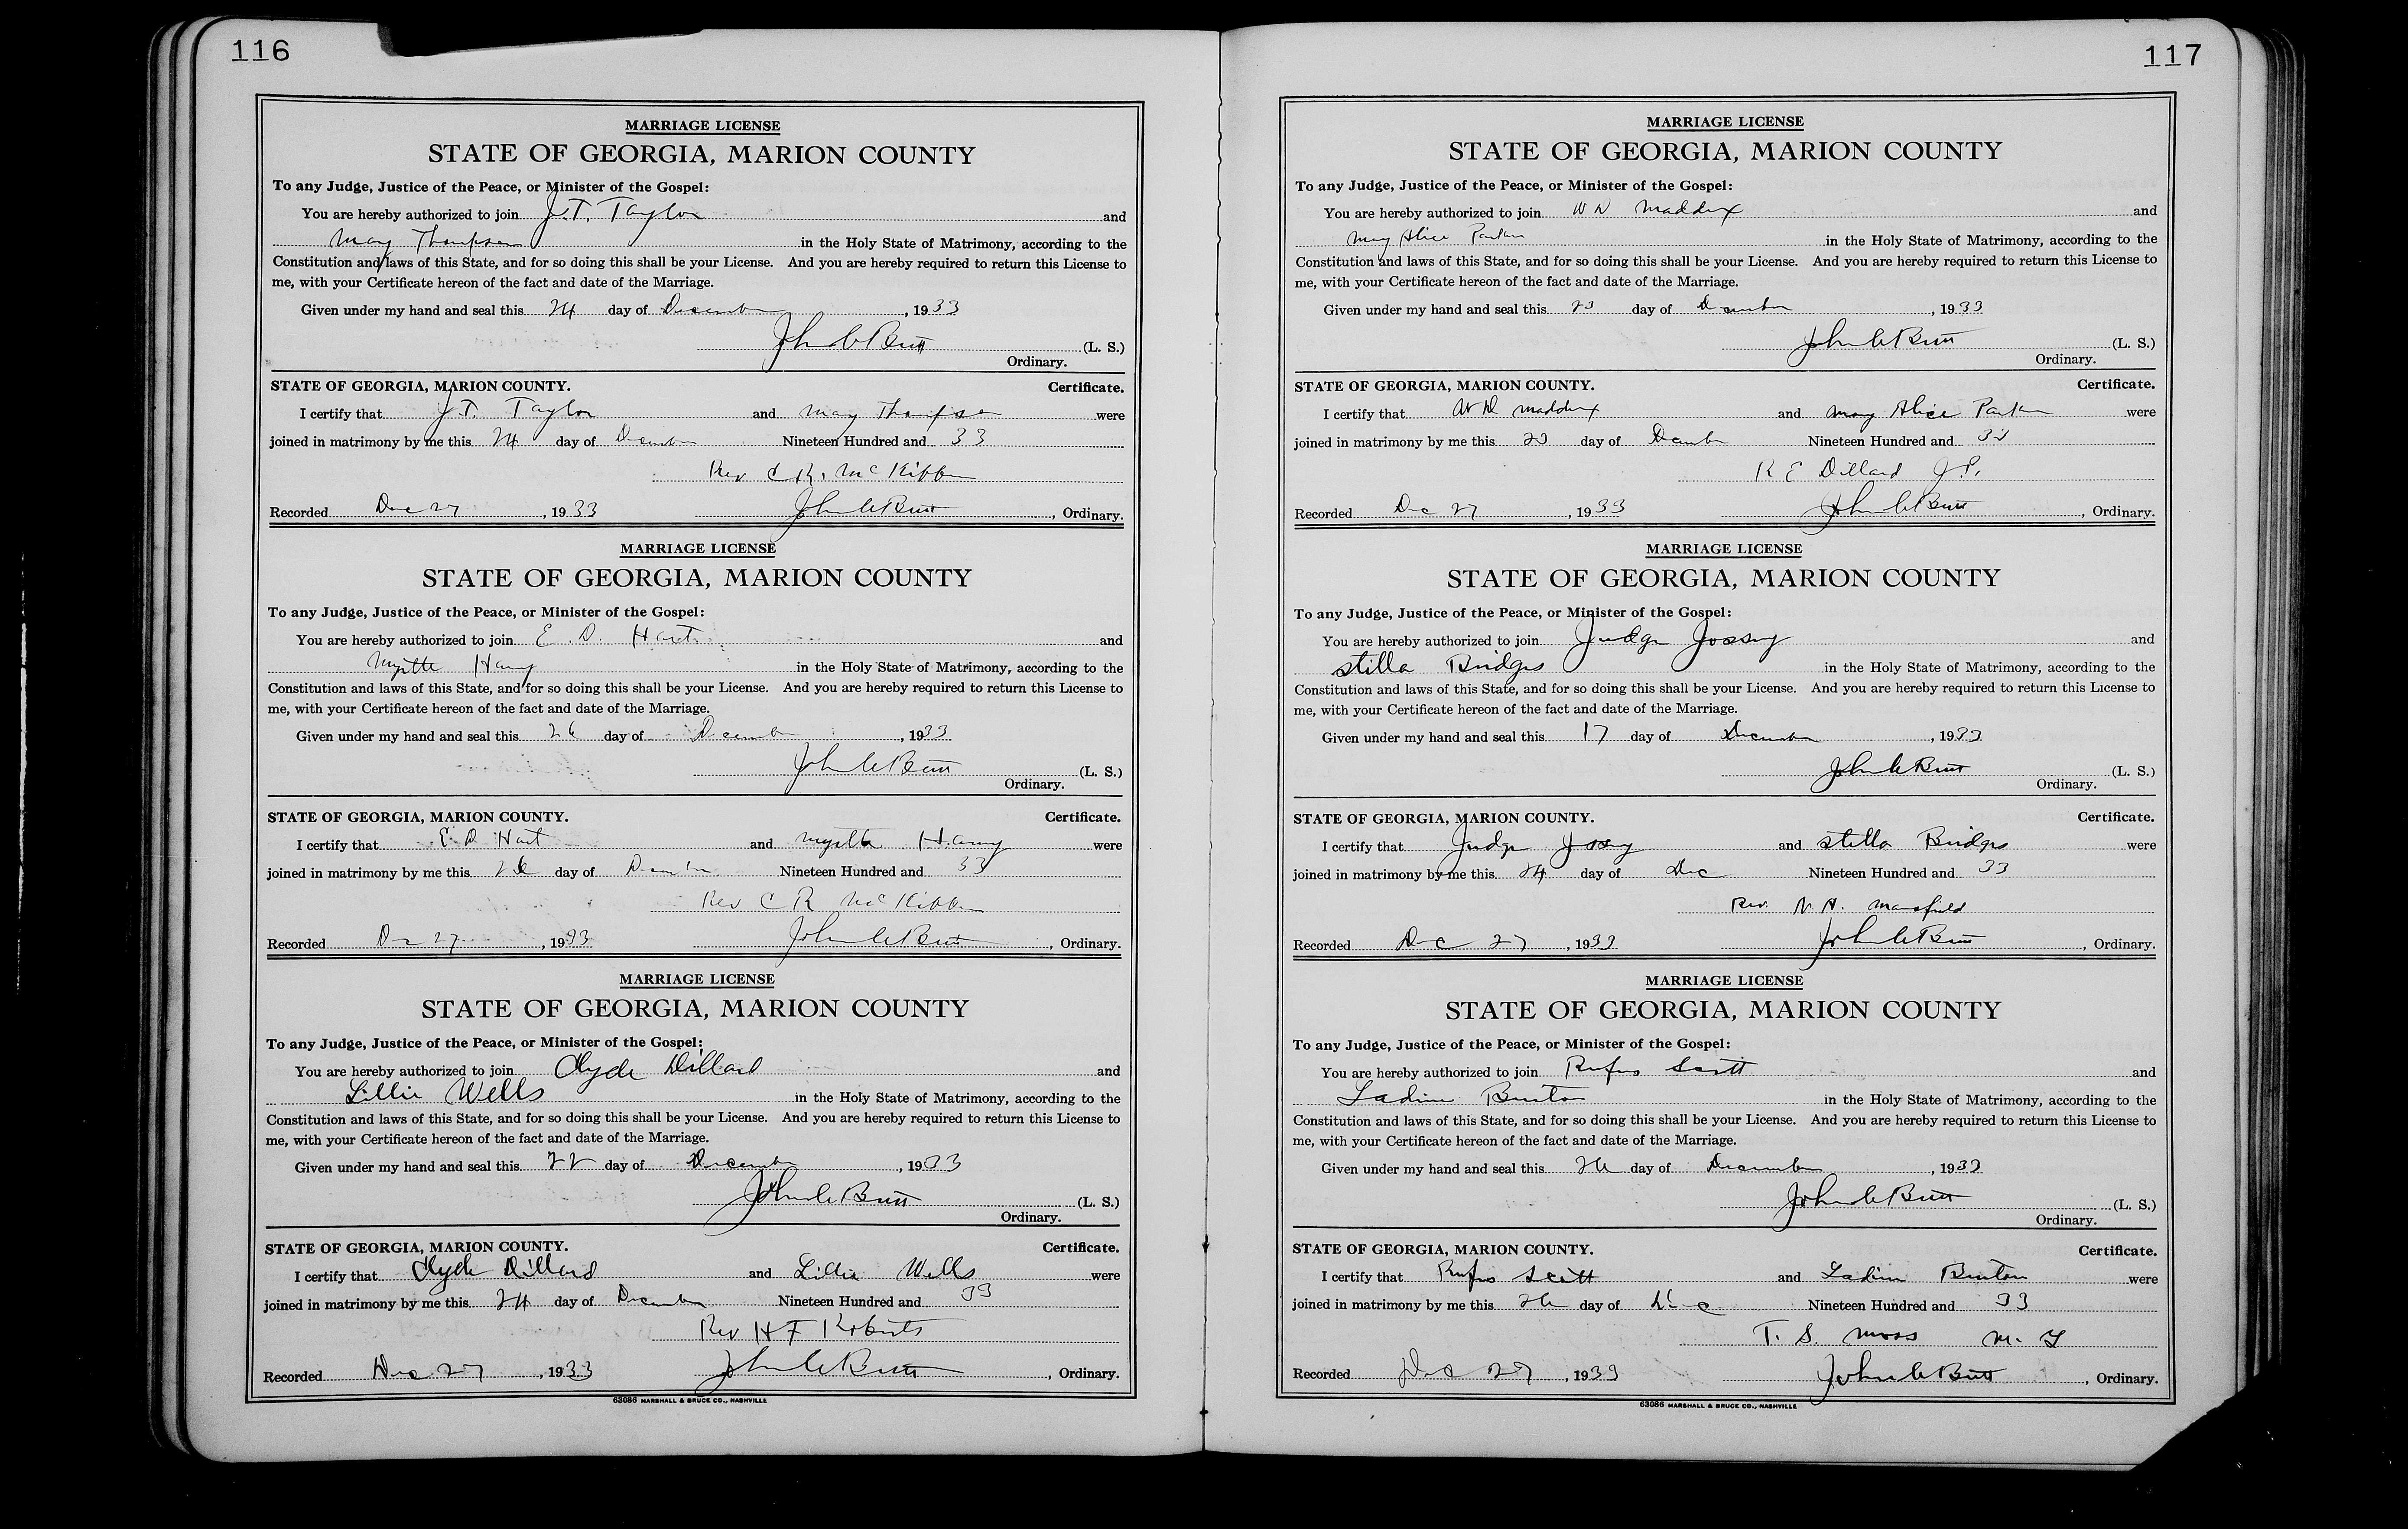 116
MARRIAGE LICENSE
STATE OF GEORGIA, MARION COUNTY
To any Judge, Justice of the Peace, or Minister of the Gospel:
You are hereby authorized to join J.T. Taylor and
May Thompson in the Holy State of Matrimony, according to the
Constitution and laws of this State, and for so doing this shall be your License. And you are hereby required to return this License to
me, with your Certificate hereon of the fact and date of the Marriage.
Given under my hand and seal this 24 day of December, 1933
John C Butt (L. S.)
Ordinary.
STATE OF GEORGIA, MARION COUNTY. Certificate.
I certify that J.T. Taylor and May Thompson were
joined in matrimony by me this 24 day of December Nineteen Hundred and 33
Rev C R. McKibben
Recorded Dec 27, 1933 John C Butt, Ordinary.
MARRIAGE LICENSE
STATE OF GEORGIA, MARION COUNTY
To any Judge, Justice of the Peace, or Minister of the Gospel:
You are hereby authorized to join E. D. Hart and
Myrtle in the Holy State of Matrimony, according to the
Constitution and laws of this State, and for so doing this shall be your License. And you are hereby required to return this License to
me, with your Certificate hereon of the fact and date of the Marriage.
Given under my hand and seal this 26 day of December, 1933
John C Butt (L. S.)
Ordinary.
STATE OF GEORGIA, MARION COUNTY. Certificate.
I certify that E. D Hart and Myrtle were
joined in matrimony by me this 26 day of December Nineteen Hundred and 33
Rev C R McKibben
Recorded Dec 27, 1933 John C Butt, Ordinary.
MARRIAGE LICENSE
STATE OF GEORGIA, MARION COUNTY
To any Judge, Justice of the Peace, or Minister of the Gospel:
You are hereby authorized to join Clyde Dillard and
Lillie Wells in the Holy State of Matrimony, according to the
Constitution and laws of this State, and for so doing this shall be your License. And you are hereby required to return this License to
me, with your Certificate hereon of the fact and date of the Marriage.
Given under my hand and seal this 22 day of December, 1933
John C Butt (L. S.)
Ordinary.
STATE OF GEORGIA, MARION COUNTY. Certificate.
I certify that Clyde Dillard and Lillie Wells were
joined in matrimony by me this 24 day of December Nineteen Hundred and 33
Rev H F Roberts
Recorded Dec 27, 1933 John C Butt, Ordinary.
63086 MARSHALL & BRUCE CO., NASHVILLE
117
MARRIAGE LICENSE
STATE OF GEORGIA, MARION COUNTY
To any Judge, Justice of the Peace, or Minister of the Gospel:
You are hereby authorized to join W D Maddox and
May Alice Parker in the Holy State of Matrimony, according to the
Constitution and laws of this State, and for so doing this shall be your License. And you are hereby required to return this License to
me, with your Certificate hereon of the fact and date of the Marriage.
Given under my hand and seal this 23 day of December, 1933
John C Butt (L. S.)
Ordinary.
STATE OF GEORGIA, MARION COUNTY. Certificate.
I certify that W D Maddox and May Alice Parker were
joined in matrimony by me this 23 day of December Nineteen Hundred and 33
R E Dillard J.P.
Recorded Dec 27, 1933 John C Butt, Ordinary.
MARRIAGE LICENSE
STATE OF GEORGIA, MARION COUNTY
To any Judge, Justice of the Peace, or Minister of the Gospel:
You are hereby authorized to join Judge Jossey and
Stella Bridges in the Holy State of Matrimony, according to the
Constitution and laws of this State, and for so doing this shall be your License. And you are hereby required to return this License to
me, with your Certificate hereon of the fact and date of the Marriage.
Given under my hand and seal this 17 day of December, 1933
John C Butt (L. S.)
Ordinary.
STATE OF GEORGIA, MARION COUNTY. Certificate.
I certify that Judge Jossey and Stella Bridges were
joined in matrimony by me this 24 day of Dec Nineteen Hundred and 33
Rev. Mansfield
Recorded Dec 27, 1933 John C Butt, Ordinary.
MARRIAGE LICENSE
STATE OF GEORGIA, MARION COUNTY
To any Judge, Justice of the Peace, or Minister of the Gospel:
You are hereby authorized to join Rufus Scott and
Burton in the Holy State of Matrimony, according to the
Constitution and laws of this State, and for so doing this shall be your License. And you are hereby required to return this License to
me, with your Certificate hereon of the fact and date of the Marriage.
Given under my hand and seal this day of December, 1933
John C Butt (L. S.)
Ordinary.
STATE OF GEORGIA, MARION COUNTY. Certificate.
I certify that Rufus Scott and Burton were
joined in matrimony by me this day of Dec Nineteen Hundred and 33
T. S. Moss M. G
Recorded Dec 27, 1933 John C Butt, Ordinary.
63086 MARSHALL & BRUCE CO., NASHVILLE